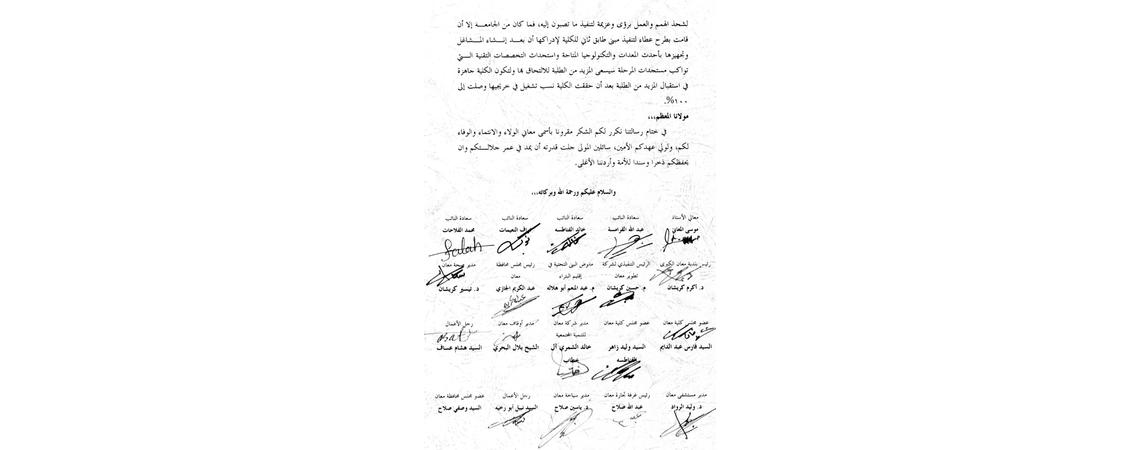 لشحذ الهمم والعمل برؤى وعزيمة لتنفيذ ما تصبون إليه، فما كان من الجامعة إلا أن
قامت بطرح عطاء لتنفيذ مبنى طابق ثاني للكلية لإدراكها أن بعد إنشاء المشاغل
وتجهيزها بأحدث المعدات والتكنولوجيا المتاحة واستحداث التخصصات التقنية التي
تواكب مستجدات المرحلة سيسعى المزيد من الطلبة للالتحاق بها ولتكون الكلية جاهزة
في استقبال المزيد من الطلبة بعد أن حققت الكلية نسب تشغيل في خريجيها وصلت إلى
١٠٠%.
مولانا المعظم،،،
في ختام رسالتنا نكرر لكم الشكر مقرونا بأسمى معاني الولاء والانتماء والوفاء
لكم، ولولي عهدكم الأمين، سائلين المولى جلت قدرته أن يمد في عمر جلالتكم وان
يحفظكم ذخرا وسندا للأمة وأردننا الأغلى.
والسلام عليكم ورحمة الله وبركاته،،،
معالي الأستاذ سعادة النائب سعادة النائب سعادة النائب سعادة النائب
موسى المعاني عبد الله القرامسة خالد الفناطسه نواف النعيمات محمد الفلاحات
Falah
رئيس بلدية معان الكبرى الرئيس التنفيذي لشركة مفوض البنى التحتية في رئيس مجلس محافظة مدير صحة معان
تطوير معان إقليم البتراء معان
د. اكرم كريشان م. حسين كريشان م. عبد المنعم أبو هلاله عبد الكريم الجازي د. تيسير كريشان
عضو مجلس كلية معان عضو مجلس كلية معان مدير شركة معان مدير أوقاف معان رجل الأعمال
للتنمية المجتمعية
السيد فارس عبد الدايم السيد وليد زاهر خالد الشمري آل الشيخ بلال البحري السيد هشام عساف
الفناطسه خطاب
مدير مستشفى معان رئيس غرفة تجارة معان مدير سياحة معان رجل الأعمال عضو مجلس محافظة معان
د. وليد الرواد عبد الله صلاح د. ياسين صلاح السيد نبيل أبو رخيه السيد وصفي صلاح